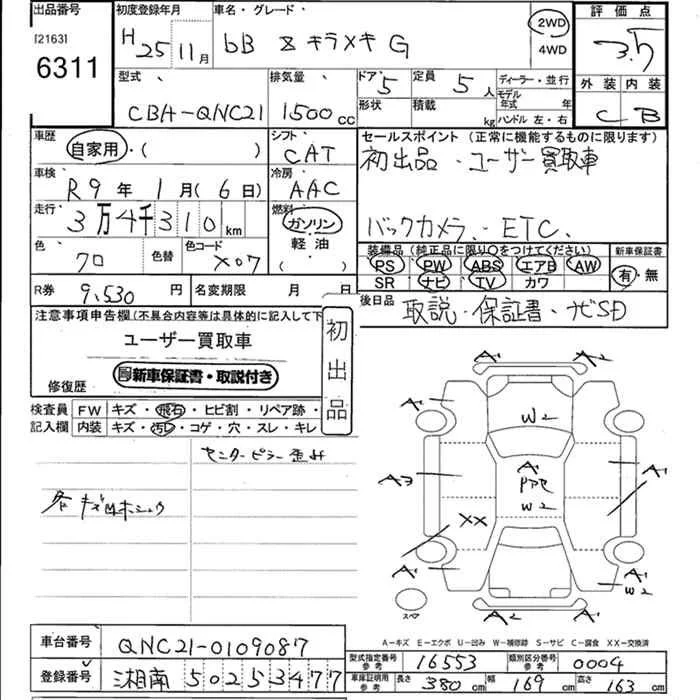 出品番号 初度登録年月 車名・グレード 評価点
[2163] H25 11月 bB Z キラメキ G 2WD 4WD 3.5
6311
型式 排気量 ドア 5 定員 5人 ディーラー・並行 外装 内装
CBA-QNC21 1500cc 形状 積載 kg モデル年式 年 ハンドル 左・右 C B
車歴 自家用・( ) シフト CAT セールスポイント (正常に機能するものに限ります)
初出品・ユーザー買取車
車検 R9年 1月(6日) 冷房 AAC
走行 3万4千310km 燃料 ガソリン 軽油 ( )
バックカメラ、ETC、
色 クロ 色替 色コード X07
装備品(純正品に限り○をつけてください) 新車保証書
PS PW ABS エアB AW 有・無
SR ナビ TV カワ
R券 9,530円 名変期限 月 日
後日品 取説・保証書・ナビSD
注意事項申告欄(不具合内容等は具体的に記入して下
ユーザー買取車
初出品
新車保証書・取説付き
修復歴
検査員 FW キズ・飛石・ヒビ割・リペア跡・
記入欄 内装 キズ・汚レ・コゲ・穴・スレ・キレ
センターピラー歪み
A1 A2
A1 W2
A3 A1 A1
PPセ
W2
XX
A1 A1
W2
スペア A2 A1
A-キズ E-エクボ U-凹み W-補修跡 S-サビ C-腐食 XX-交換済
車台番号 QNC21-0109087
型式指定番号 参考 16553 類別区分番号 参考 0004
登録番号 湘南 502 5 3477
車庫証明用 参考 長さ 380cm 幅 169cm 高さ 163cm